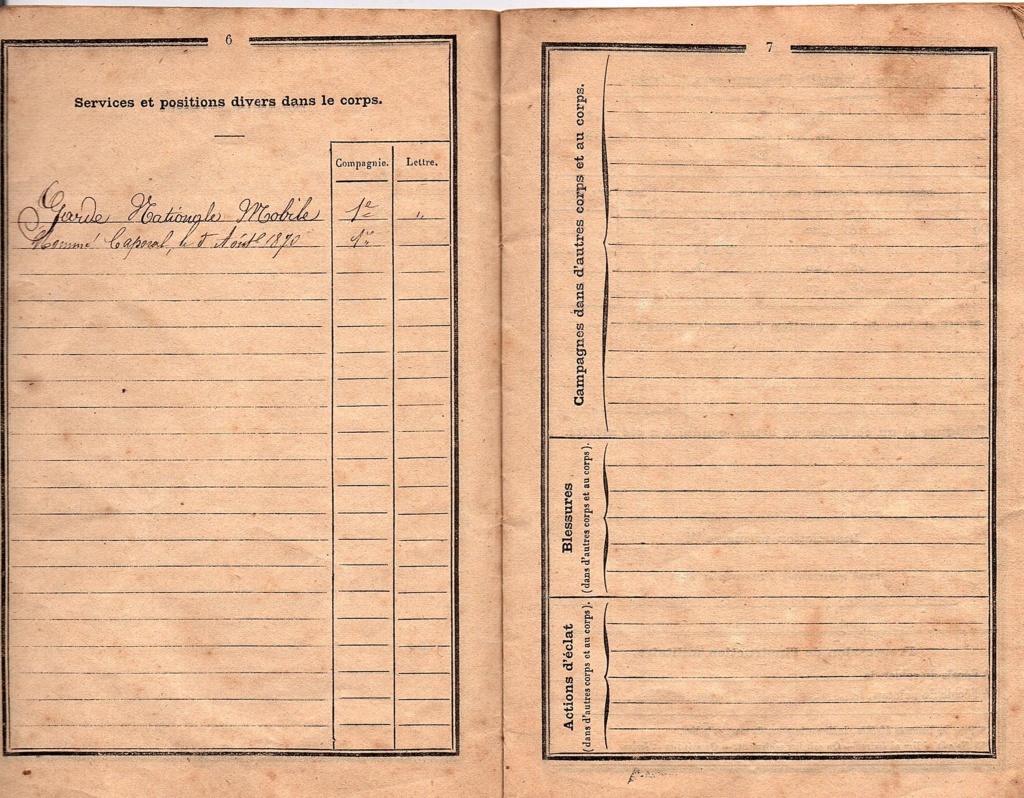 6
Services et positions divers dans le corps.
Compagnie. Lettre.
Garde Nationale Mobile 1e "
Nommé Caporal, le Août 1870 1re
7
Campagnes dans d'autres corps et au corps.
Blessures
(dans d'autres corps et au corps).
Actions d'éclat
(dans d'autres corps et au corps).